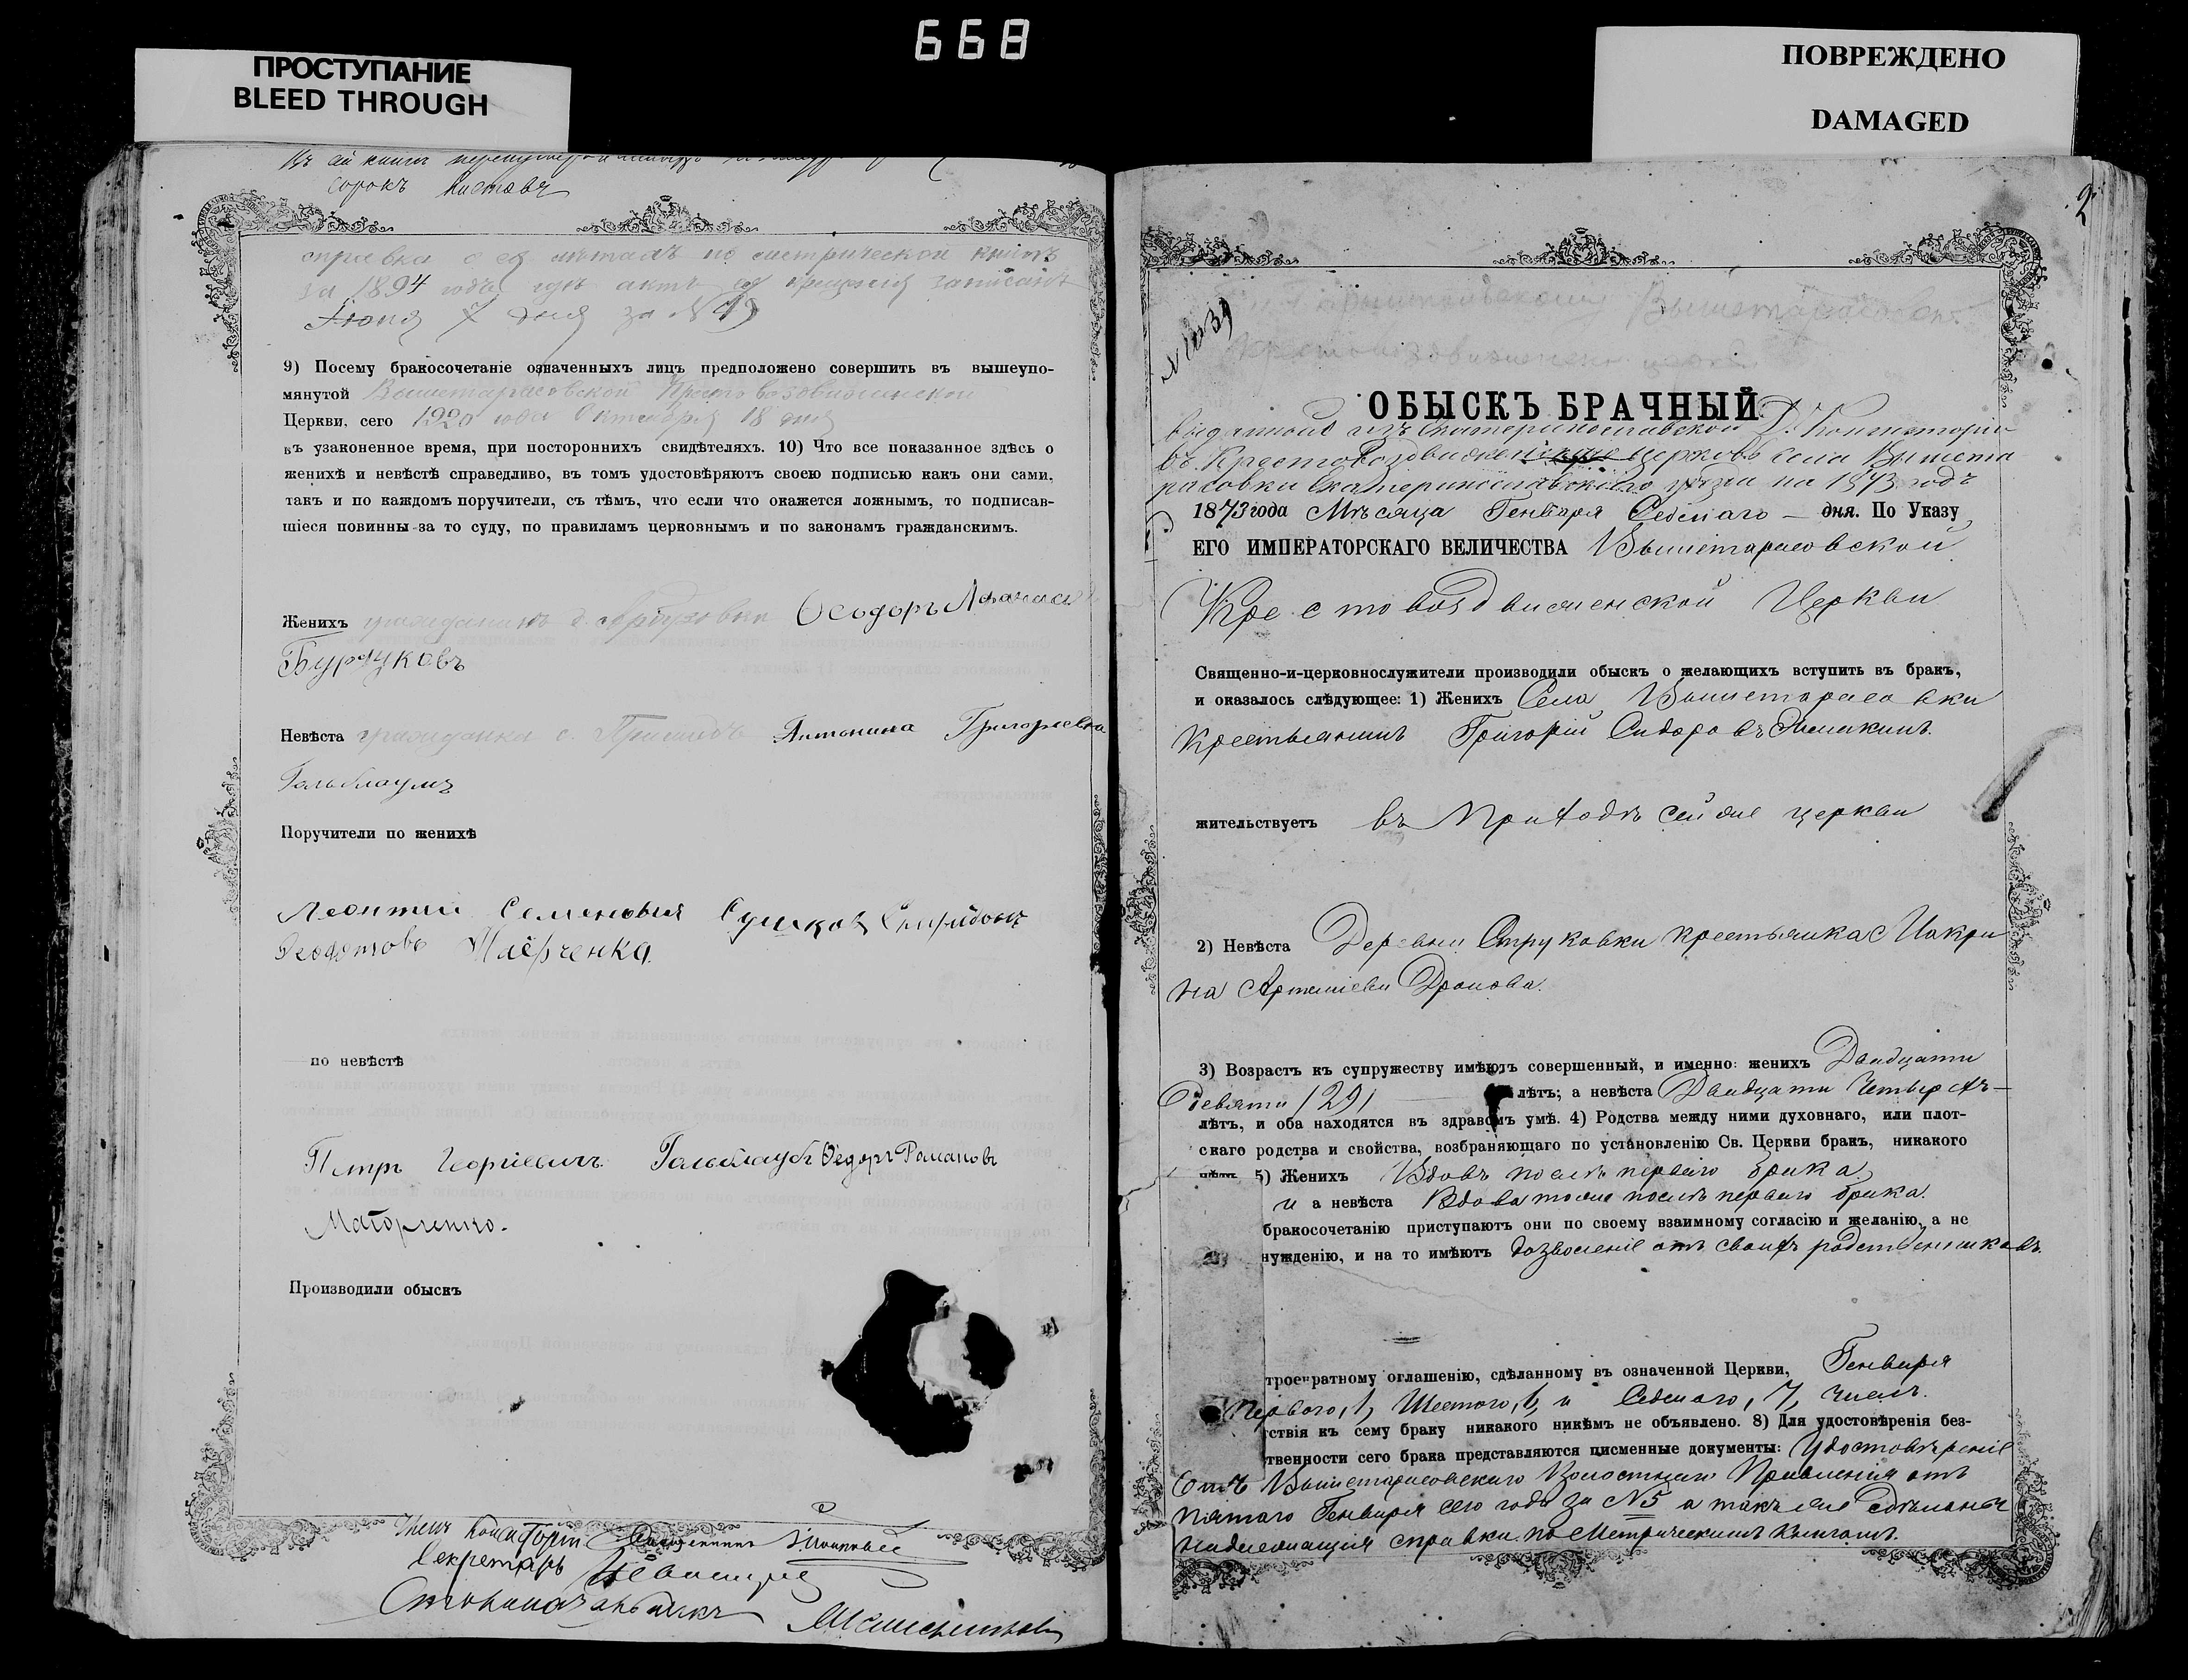 668
ПРОСТУПАНИЕ
BLEED THROUGH
ПОВРЕЖДЕНО
DAMAGED
сорокъ листовъ
справка о ея лѣтахъ по метрической книгѣ
за 1894 годъ гдѣ актъ крещенія записанъ
7 дня за №
9) Посему бракосочетаніе означенныхъ лицъ предположено совершить въ вышеупо-
мянутой Вышетарасовской Крестовоздвиженской
Церкви, сего 1920 года Октября 18 дня
въ узаконенное время, при постороннихъ свидѣтеляхъ. 10) Что все показанное здѣсь о
женихѣ и невѣстѣ справедливо, въ томъ удостовѣряютъ своею подписью какъ они сами,
такъ и по каждомъ поручители, съ тѣмъ, что если что окажется ложнымъ, то подписав-
шіеся повинны за то суду, по правиламъ церковнымъ и по законамъ гражданскимъ.
Женихъ гражданинъ Ѳеодоръ
Невѣста гражданка с. Антонина Григорьевна
Поручители по женихѣ
Леонтій Семеновичъ Спиридонъ
по невѣстѣ
Петръ Георгіевичъ Федоръ Романовъ
Производили обыскъ
Членъ Консисторіи Священникъ
Секретарь
2
ОБЫСКЪ БРАЧНЫЙ
выданной изъ Екатеринославской Д. Консисторіи
въ Крестовоздвиженскую церковь села Вышета
расовки Екатеринославскаго уѣзда на 1873 годъ
1873 года Мѣсяца Генваря Седьмаго — дня. По Указу
ЕГО ИМПЕРАТОРСКАГО ВЕЛИЧЕСТВА Вышетарасовской
Крестовоздвиженской Церкви
Священно-и-церковнослужители производили обыскъ о желающихъ вступить въ бракъ,
и оказалось слѣдующее: 1) Женихъ Села Вышетарасовки
Крестьянинъ Григорій Сидоровъ
жительствуетъ въ приходѣ сей же церкви
2) Невѣста Деревни Струковки крестьянка Макри
на Артеміева Дронова.
3) Возрастъ къ супружеству имѣютъ совершенный, и именно: женихъ Двадцати
девяти /29/ лѣтъ; а невѣста Двадцати Четырехъ —
лѣтъ, и оба находятся въ здравомъ умѣ. 4) Родства между ними духовнаго, или плот-
скаго родства и свойства, возбраняющаго по установленію Св. Церкви бракъ, никакого
нѣтъ 5) Женихъ Вдовъ послѣ перваго брака
и а невѣста Вдова тоже послѣ перваго брака.
бракосочетанію приступаютъ они по своему взаимному согласію и желанію, а не
нужденію, и на то имѣютъ дозволеніе отъ своихъ родственниковъ.
троекратному оглашенію, сдѣланному въ означенной Церкви, Генваря
Перваго, 1, Шестого, 6, и Седьмаго, 7, числъ.
ствія къ сему браку никакого никѣмъ не объявлено. 8) Для удостовѣренія без-
твенности сего брака представляются писменные документы: Удостовѣреніе
отъ Вышетарасовскаго Волостнаго Правленія отъ
пятаго Генваря сего года за №5 а также сдѣланы
надлежащія справки по Метрическимъ Книгамъ.